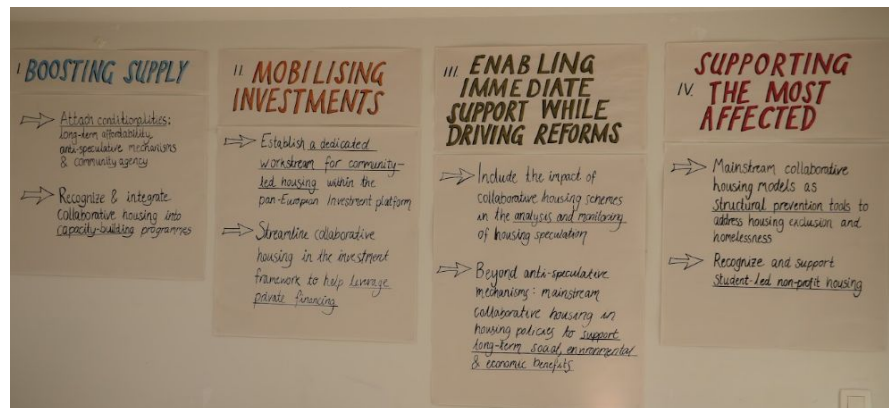 I BOOSTING SUPPLY
Attach conditionalities:
long-term affordability,
anti-speculative mechanisms
& community agency
Recognize & integrate
collaborative housing into
capacity-building programmes
II MOBILISING
INVESTMENTS
Establish a dedicated
workstream for community-
led housing within the
pan-European Investment platform
Streamline collaborative
housing in the investment
framework to help leverage
private financing
III. ENABLING
IMMEDIATE
SUPPORT WHILE
DRIVING REFORMS
Include the impact of
collaborative housing schemes
in the analysis and monitoring
of housing speculation
Beyond anti-speculative
mechanisms: mainstream
collaborative housing in
housing policies to support
long-term social, environmental
& economic benefits
SUPPORTING
IV. THE MOST
AFFECTED
Mainstream collaborative
housing models as
structural prevention tools to
address housing exclusion and
homelessness
Recognize and support
student-led non-profit housing